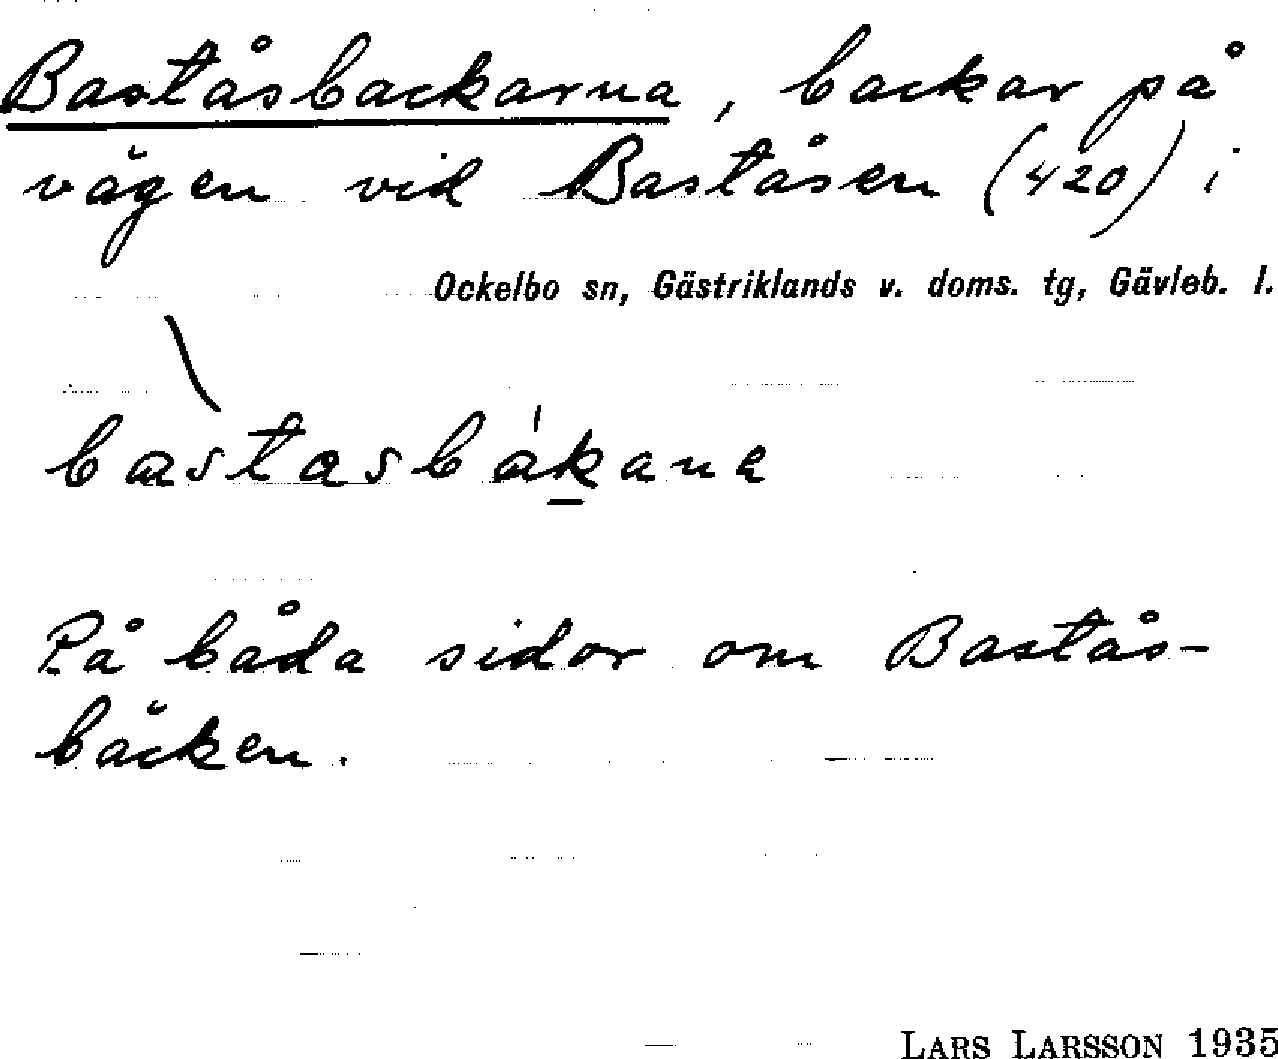 Baståsbackarna, backar på
vägen vid Baståsen (420) i
Ockelbo sn, Gästriklands v. doms. tg, Gävleb. l.
bastasbákana
På båda sidor om Bastås-
bäcken.
LARS LARSSON 1935